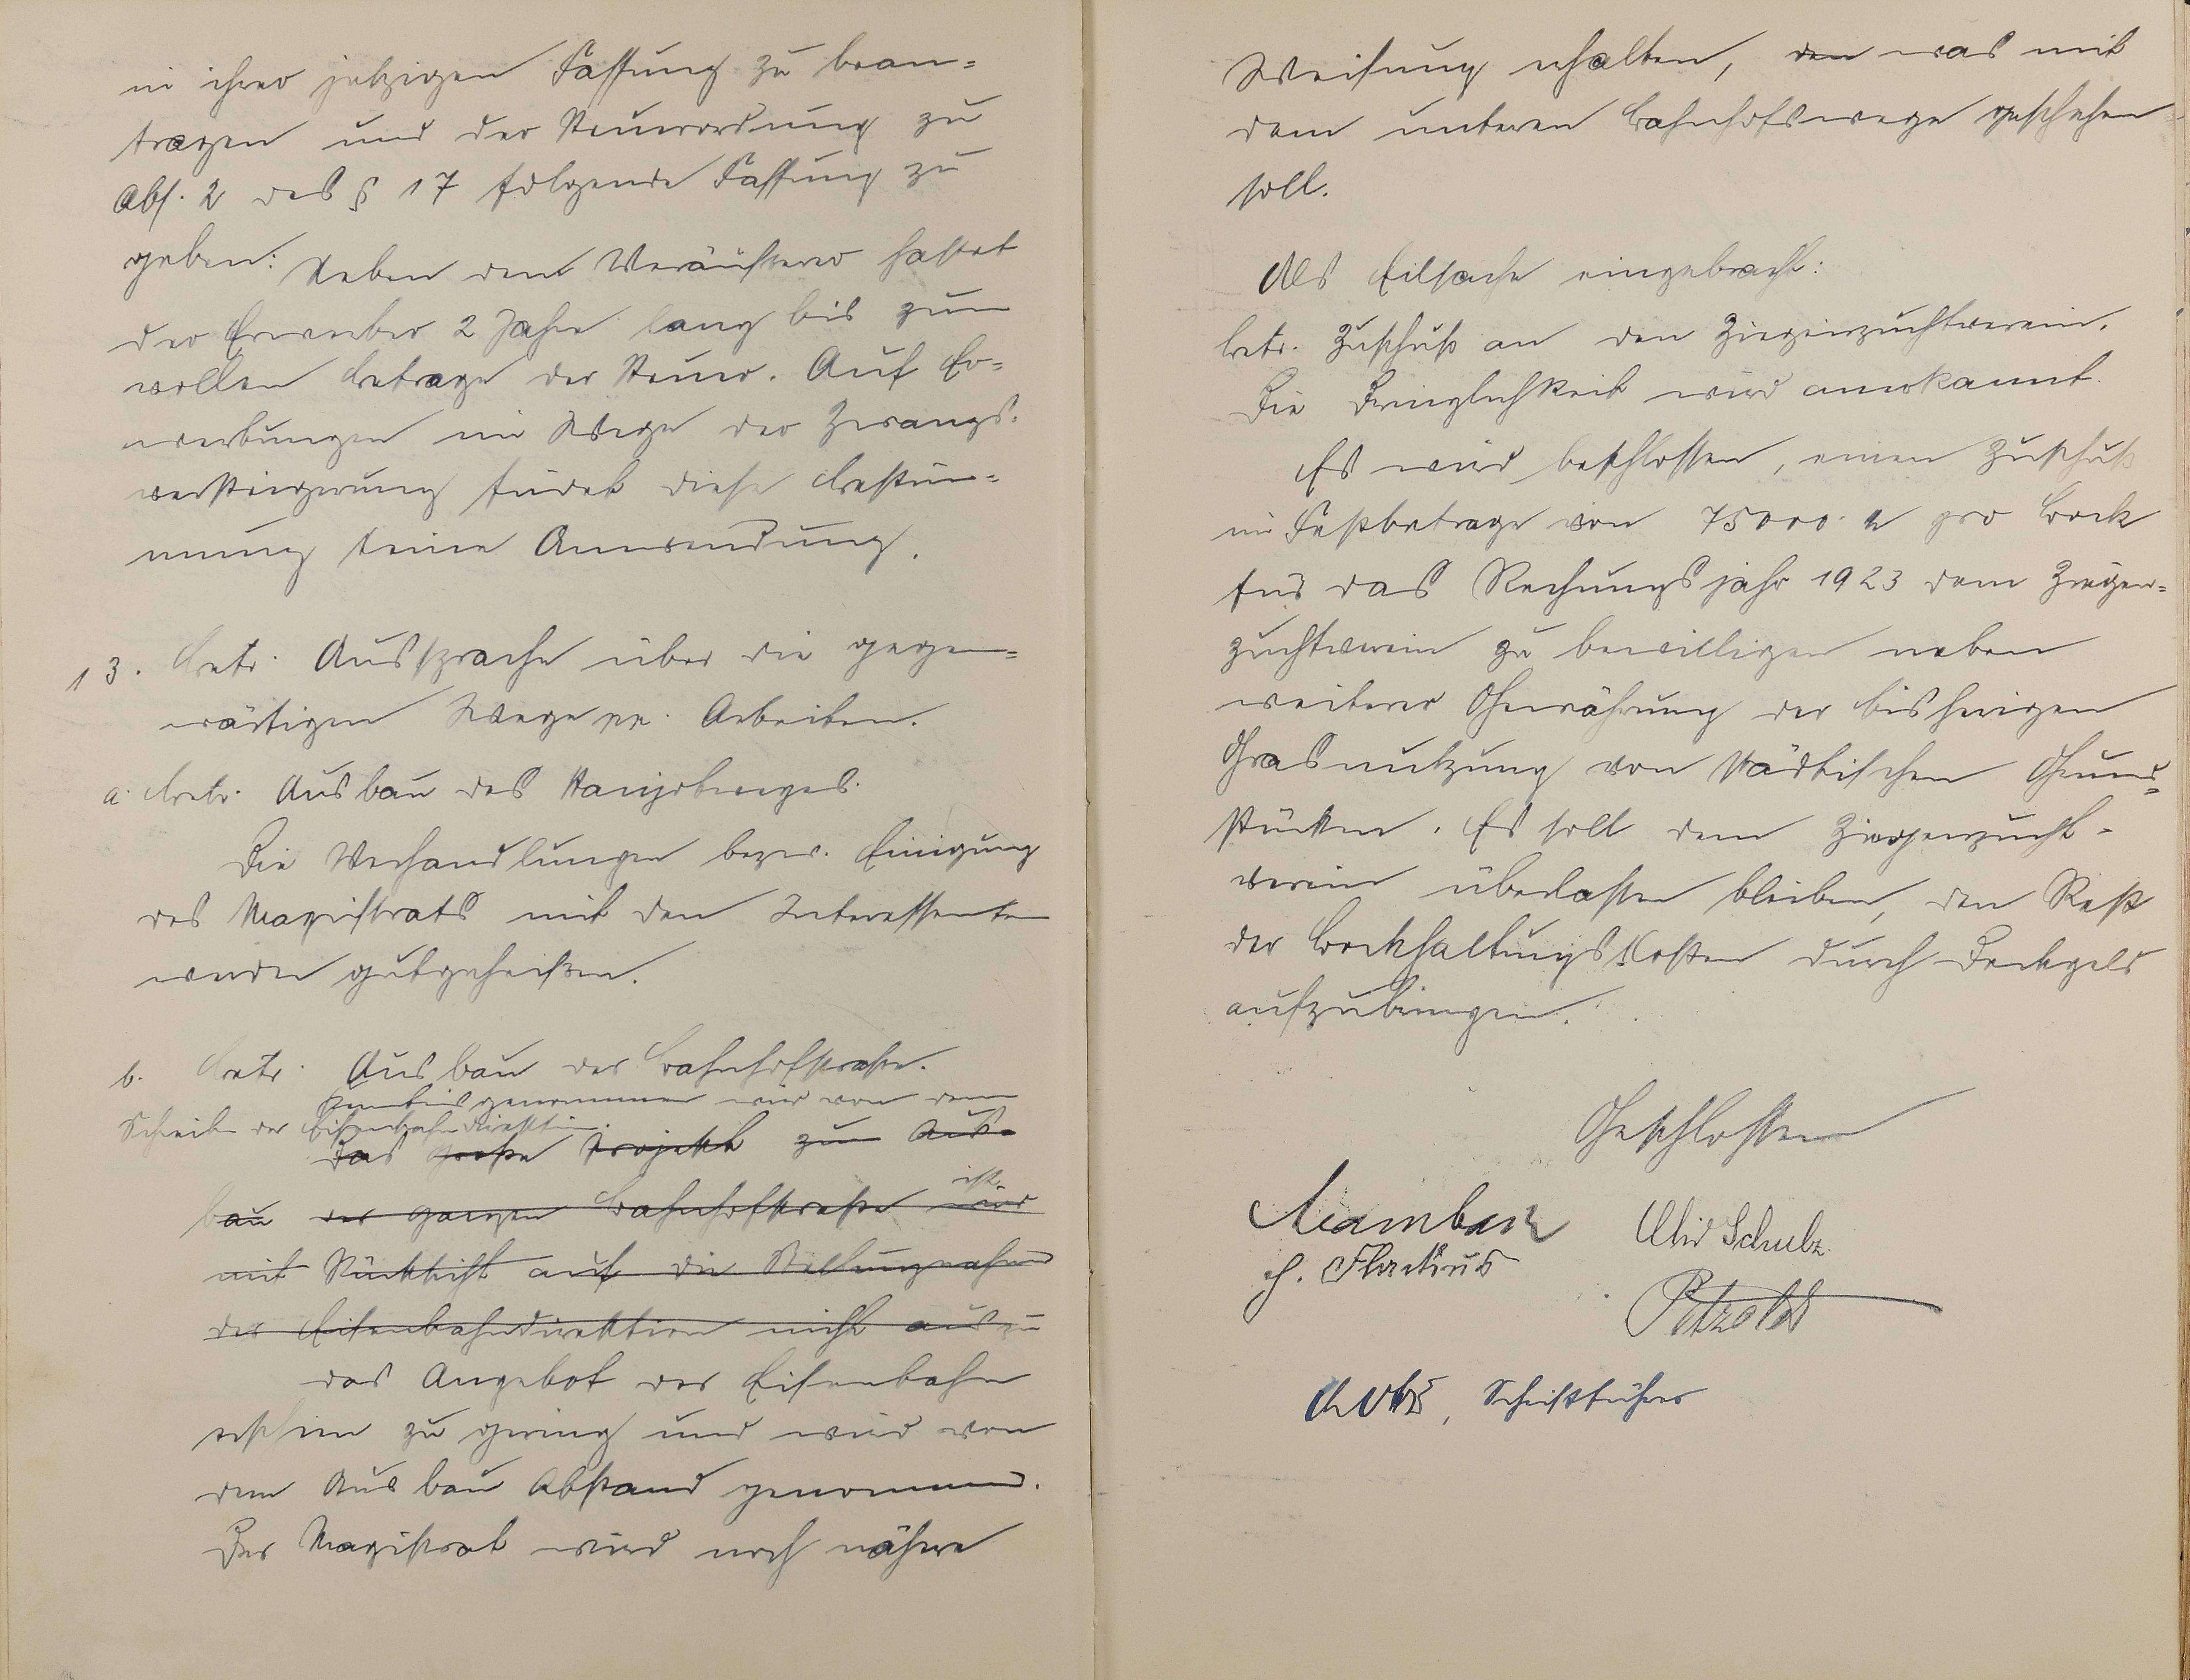 in ihrer jetzigen Fassung zu bean=
tragen und der Steuerordnung zu
Abs. 2 des § 17 folgende Fassung zu
geben: Neben dem Veräußerer haftet
der Erwerber 2 Jahre lang bis zum
vollen Betrage der Steuer. Auf Er=
werbungen im Wege der Zwangs=
versteigerung findet diese Bestim=
mung keine Anwendung.
13. Betr. Aussprache über die gegen=
wärtigen Wege pp. Arbeiten.
a. Betr. Ausbau des
Die Verhandlungen bezw. Einigung
des Magistrats mit den Interessenten
werden gutgeheißen.
b. Betr. Ausbau der Bahnhofstraße.
Kenntnis genommen wird von dem
Schreiben der Eisenbahndirektion.
Das große Projekt zum Aus=
bau der ganzen Bahnhofstraße wird
ist
mit Rücksicht auf die Stellungnahme
der Eisenbahndirektion nicht auszu
das Angebot der Eisenbahn
erschien zu gering und wird von
dem Ausbau Abstand genommen.
Der Magistrat wird noch nähere
Weisung erhalten, den was mit
dem unteren Bahnhofswege geschehen
soll.
Als Eilsache eingebracht:
betr. Zuschuß an den Ziegenzuchtverein.
Die Dringlichkeit wird anerkannt.
Es wird beschlossen, einen Zuschuß
im Festbetrage von 75000 M pro Bock
für das Rechnungsjahr 1923 dem Ziegen=
zuchtverein zu bewilligen neben
weiterer Gewährung der bisherigen
Grasnutzung von städtischen Grund=
stücken. Es soll dem Ziegenzucht=
verein überlassen bleiben, den Rest
der Bockhaltungskosten durch Deckgeld
aufzubringen.
Geschlossen
Schulz
Petzold
Schriftführer